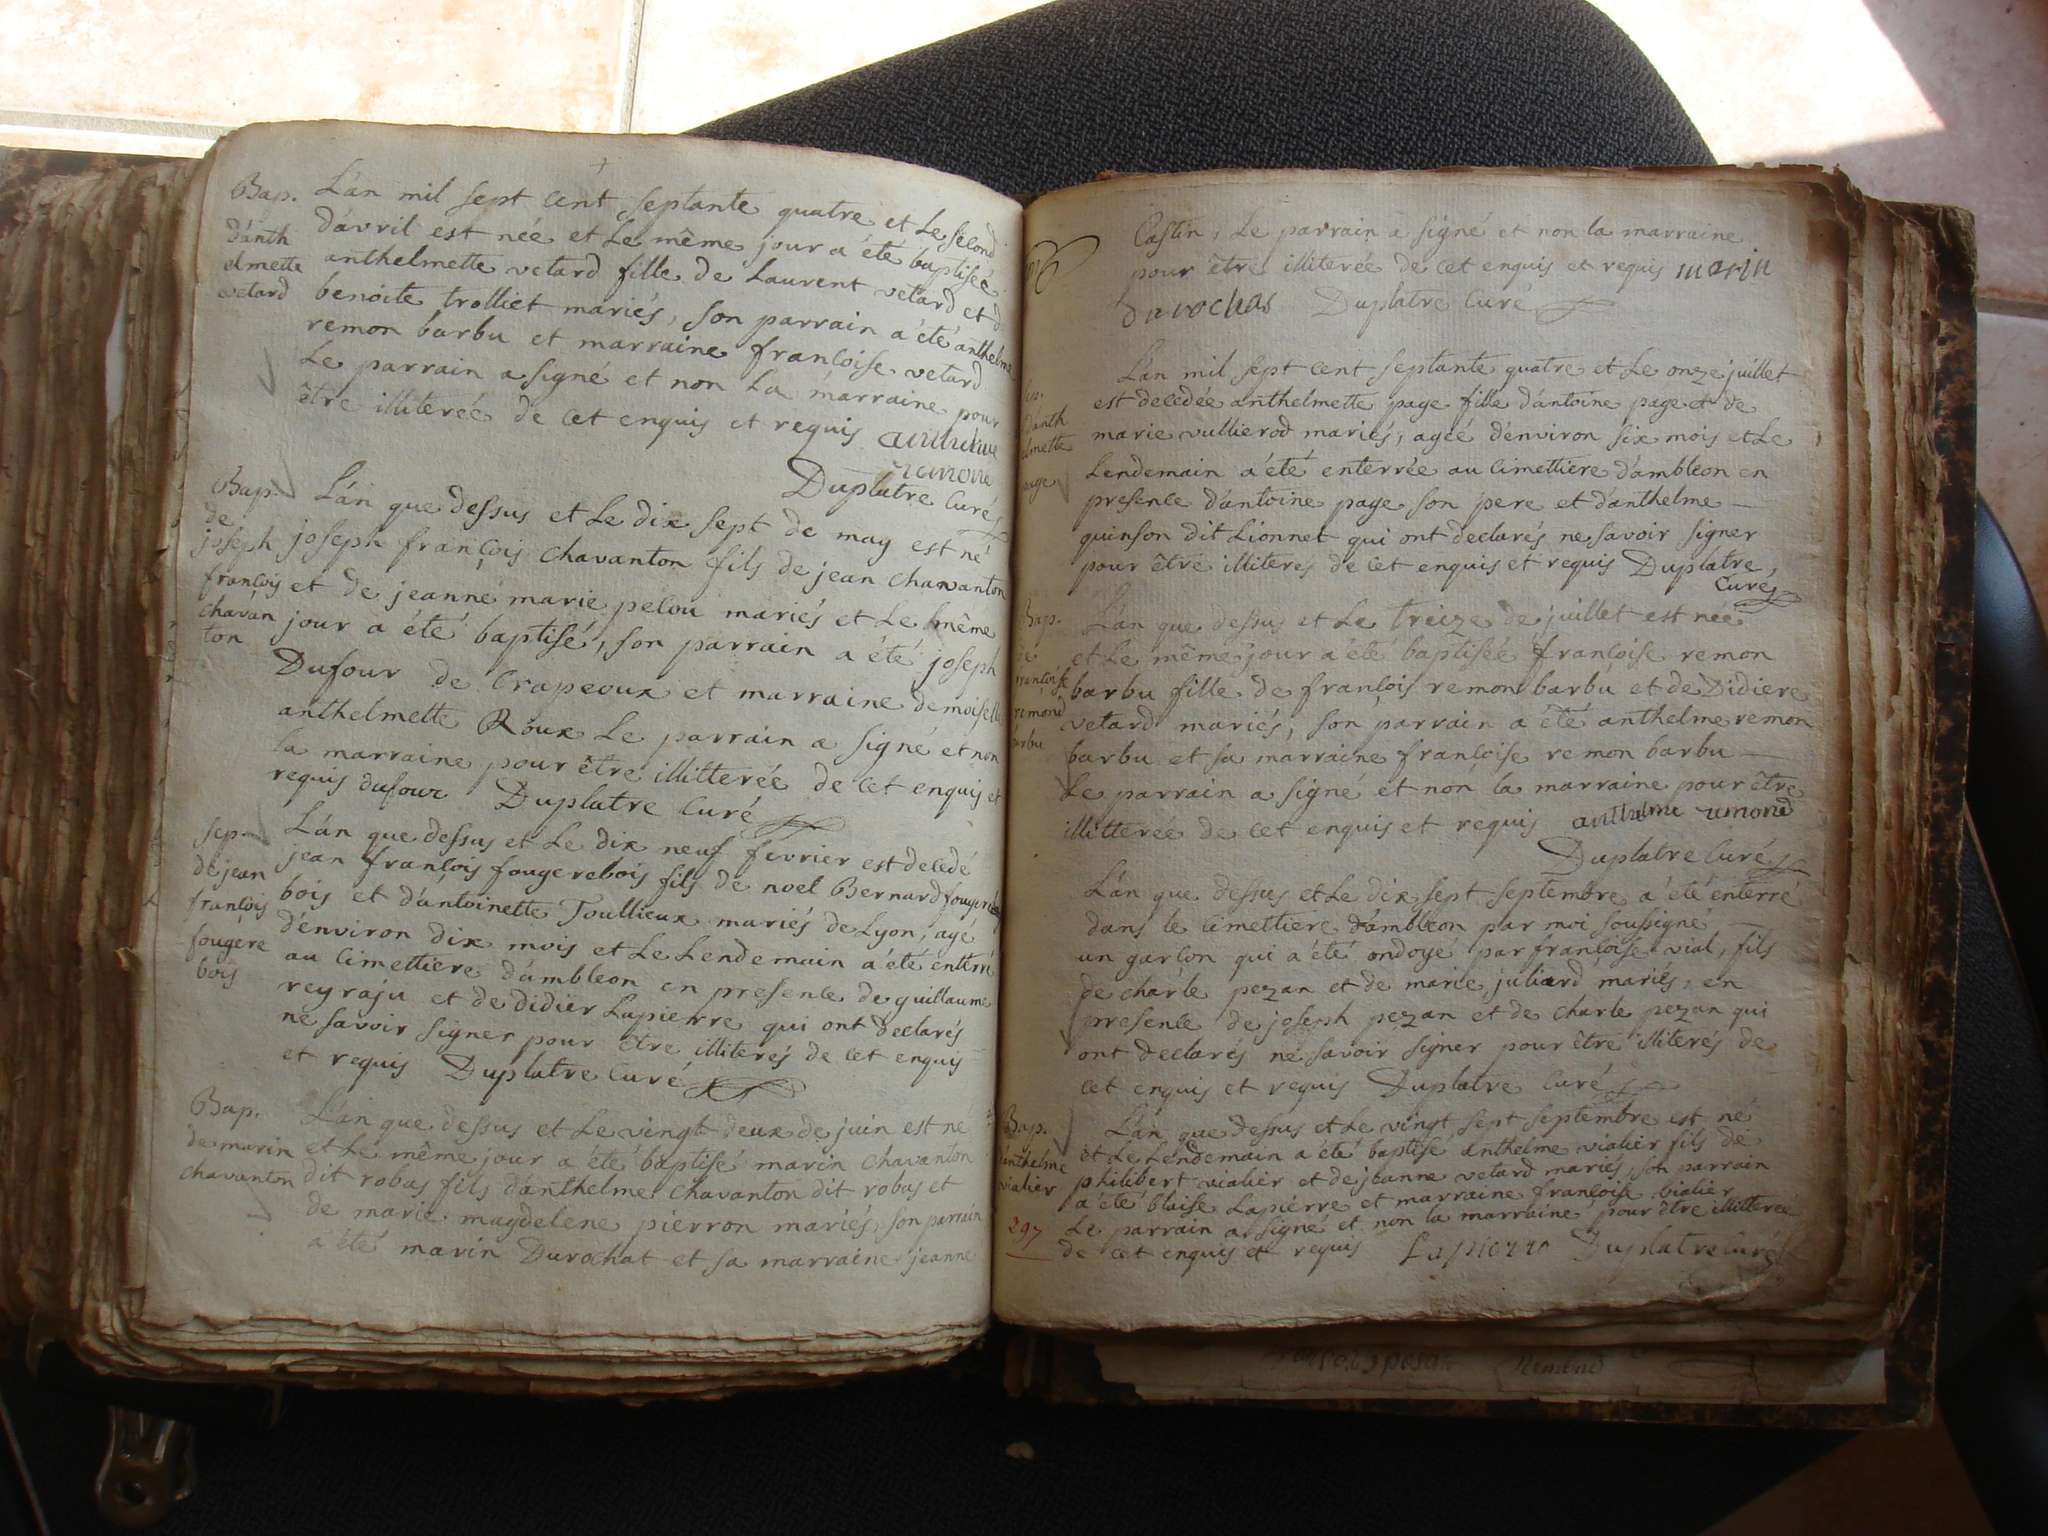 Bap.
d'anth
elmette
vetard
L'an mil sept cent septante quatre et le second
d'avril est née et le même jour a été baptisée
anthelmette vetard fille de Laurent vetard et d
benoite trolliet mariés, son parrain a été anthelme
remon barbu et marraine françoise vetard
Le parrain a signé et non la marraine pour
être illiterée de cet enquis et requis anthelme
remond
Duplatre Curé
Bap.
de
joseph
françois
chavan
ton
L'an que dessus et le dix sept de may est né
joseph françois chavanton fils de jean chavanton
et de jeanne marie pelou mariés et le même
jour a été baptisé, son parrain a été joseph
Dufour de Crapeoux et marraine demoiselle
anthelmette Roux Le parrain a signé et non
la marraine pour être illitterée de cet enquis et
requis dufour Duplatre Curé
sep.
de jean
françois
fougere
bois
L'an que dessus et Le dix neuf fevrier est decedé
jean françois fougerebois fils de noel Bernard fougere
bois et d'antoinette Toullieux mariés de Lyon, agé
d'environ dix mois et Le Lendemain a été enterré
au cimettiere d'ambleon en presence de guillaume
reyraju et de didier Lapierre qui ont declarés
ne savoir signer pour être illiterés de cet enquis
et requis Duplatre Curé
Bap.
de marin
chavanton
L'an que dessus et Le vingt deux de juin est né
et Le même jour a été baptisé marin chavanton
dit robas fils d'anthelme chavanton dit robas et
de marie magdelene pierron mariés, son parrain
a été marin Durochat et sa marraine jeanne
Castin, Le parrain a signé et non la marraine
pour être illiterée de cet enquis et requis marin
durochas Duplatre Curé
sep.
d'anth
elmette
page
L'an mil sept cent septante quatre et Le onze juillet
est decedée anthelmette page fille d'antoine page et de
marie vullierod mariés, ageé d'environ six mois et Le
Lendemain a été enterrée au cimettiere d'ambleon en
presence d'antoine page son pere et d'anthelme
quinson dit Lionnet qui ont declarés ne savoir signer
pour être illiteres de cet enquis et requis Duplatre,
Curé
Bap.
de
françoise
remond
barbu
L'an que dessus et Le treize de juillet est née
et Le même jour a été baptisée françoise remon
barbu fille de françois remon barbu et de Didiere
vetard mariés, son parrain a été anthelme remon
barbu et sa marraine françoise remon barbu
Le parrain a signé et non la marraine pour être
illitterée de cet enquis et requis anthelme remond
Duplatre Curé
L'an que dessus et Le dix sept septembre a été enterré
dans le cimettiere d'ambleon par moi soussigné
un garçon qui a été ondoyé par françoise vial, fils
de charle pezan et de marie juliard mariés, en
presence de joseph pezan et de charle pezan qui
ont declarés ne savoir signer pour être illiterés de
cet enquis et requis Duplatre Curé
Bap.
d'anthelme
vialier
L'an que dessus et Le vingt sept septembre est né
et Le Lendemain a été baptisé anthelme vialier fils de
philibert vialier et de jeanne vetard mariés, son parrain
a été blaise Lapierre et marraine françoise vialier
Le parrain a signé et non la marraine pour être illitterée
de cet enquis et requis Lapierre Duplatre Curé
297
Remond